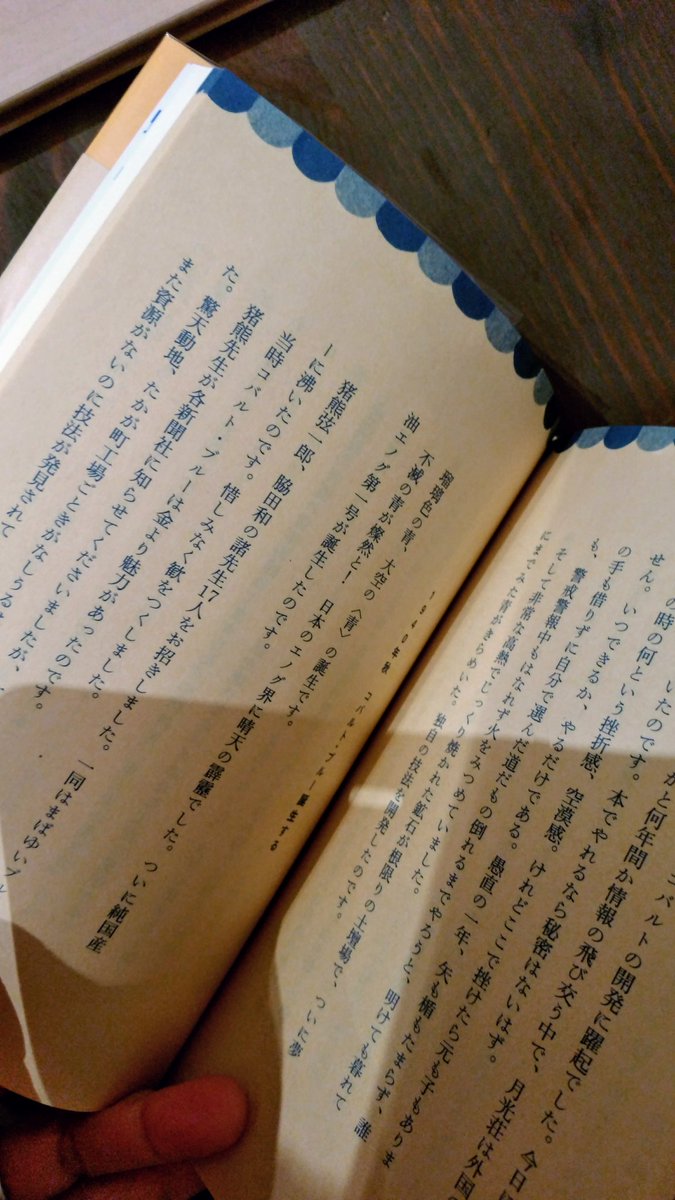 コバルトの開発に躍起でした。今日
かと何年間か情報の飛び交う中で、月光荘は外国
いたのです。本でやれるなら秘密はないはず。
の時の何という挫折感、空漠感。けれどここで挫けたら元も子もありま
せん。いつできるか、やるだけである。愚直の一年、矢も楯もたまらず、誰
の手も借りずに自分で選んだ道だもの倒れるまでやろうと、明けても暮れて
も、警戒警報中もはなれず火をみつめていました。
そして非常な高熱でじっくり焼かれた鉱石が根限りの土壇場で、ついに夢
にまでみた青がきらめいた。独自の技法を開発したのです。
1940年秋 コバルト・ブルー誕生する
瑠璃色の青、大空の〈青〉の誕生です。
不滅の青が燦然と! 日本のエノグ界に晴天の霹靂でした。ついに純国産
油エノグ第一号が誕生したのです。
猪熊弦一郎、脇田和の諸先生17人をお招きしました。一同はまばゆいブル
ーに沸いたのです。惜しみなく歓をつくしました。
当時コバルト・ブルーは金より魅力があったのです。
猪熊先生が各新聞社に知らせてくださいましたが、
た。
驚天動地、たかが町工場ごときがなしうる
また資源がないのに技法が発見されて